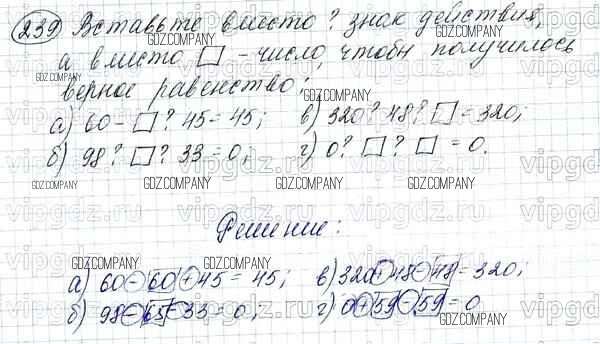 239) Вставьте вместо ? знак действия,
а вместо □ - число, чтобы получилось
верное равенство:
а) 60 - □ ? 45 = 45; в) 320 ? 48 ? □ = 320;
б) 98 ? □ ? 33 = 0; г) 0 ? □ ? □ = 0.
Решение:
а) 60 - 60 + 45 = 45; в) 320 + 48 - 48 = 320;
б) 98 - 65 - 33 = 0; г) 0 + 59 - 59 = 0